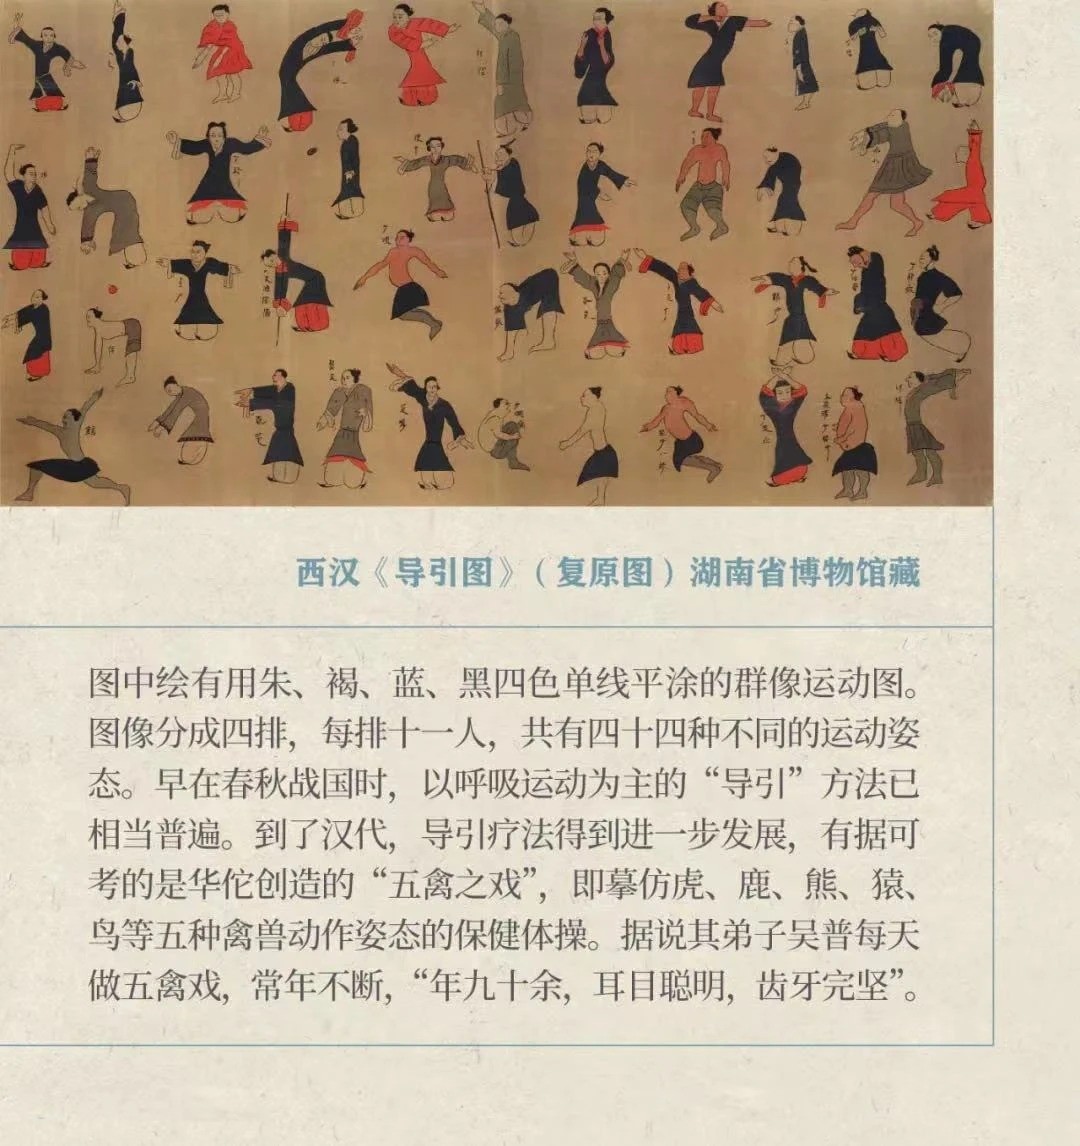 西汉《导引图》（复原图）湖南省博物馆藏
图中绘有用朱、褐、蓝、黑四色单线平涂的群像运动图。
图像分成四排，每排十一人，共有四十四种不同的运动姿
态。早在春秋战国时，以呼吸运动为主的“导引”方法已
相当普遍。到了汉代，导引疗法得到进一步发展，有据可
考的是华佗创造的“五禽之戏”，即摹仿虎、鹿、熊、猿、
鸟等五种禽兽动作姿态的保健体操。据说其弟子吴普每天
做五禽戏，常年不断，“年九十余，耳目聪明，齿牙完坚”。